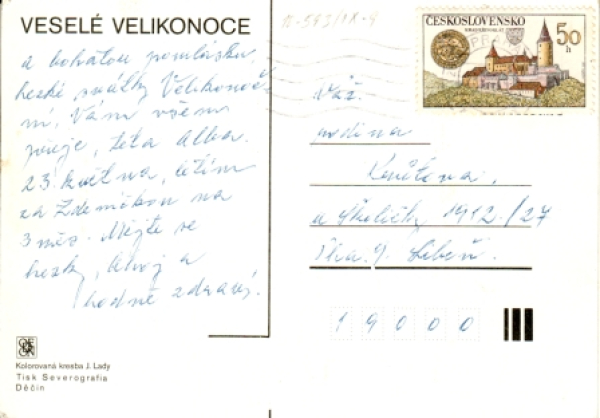 VESELÉ VELIKONOCE
a bohatou pomlázku
hezké svátky Velikonoč
ní, Vám všem
přeje, teta Alba.
23. května, letím
za Zdeničkou na
3 měs. Mějte se
hezky, Ahoj a
hodně zdraví.
Kolorovaná kresba J. Lady
Tisk Severografia
Děčín
ČESKOSLOVENSKO
50
h
Váž.
rodina
u Školičky 1912/27
Pha. 9. Libeň.
19000